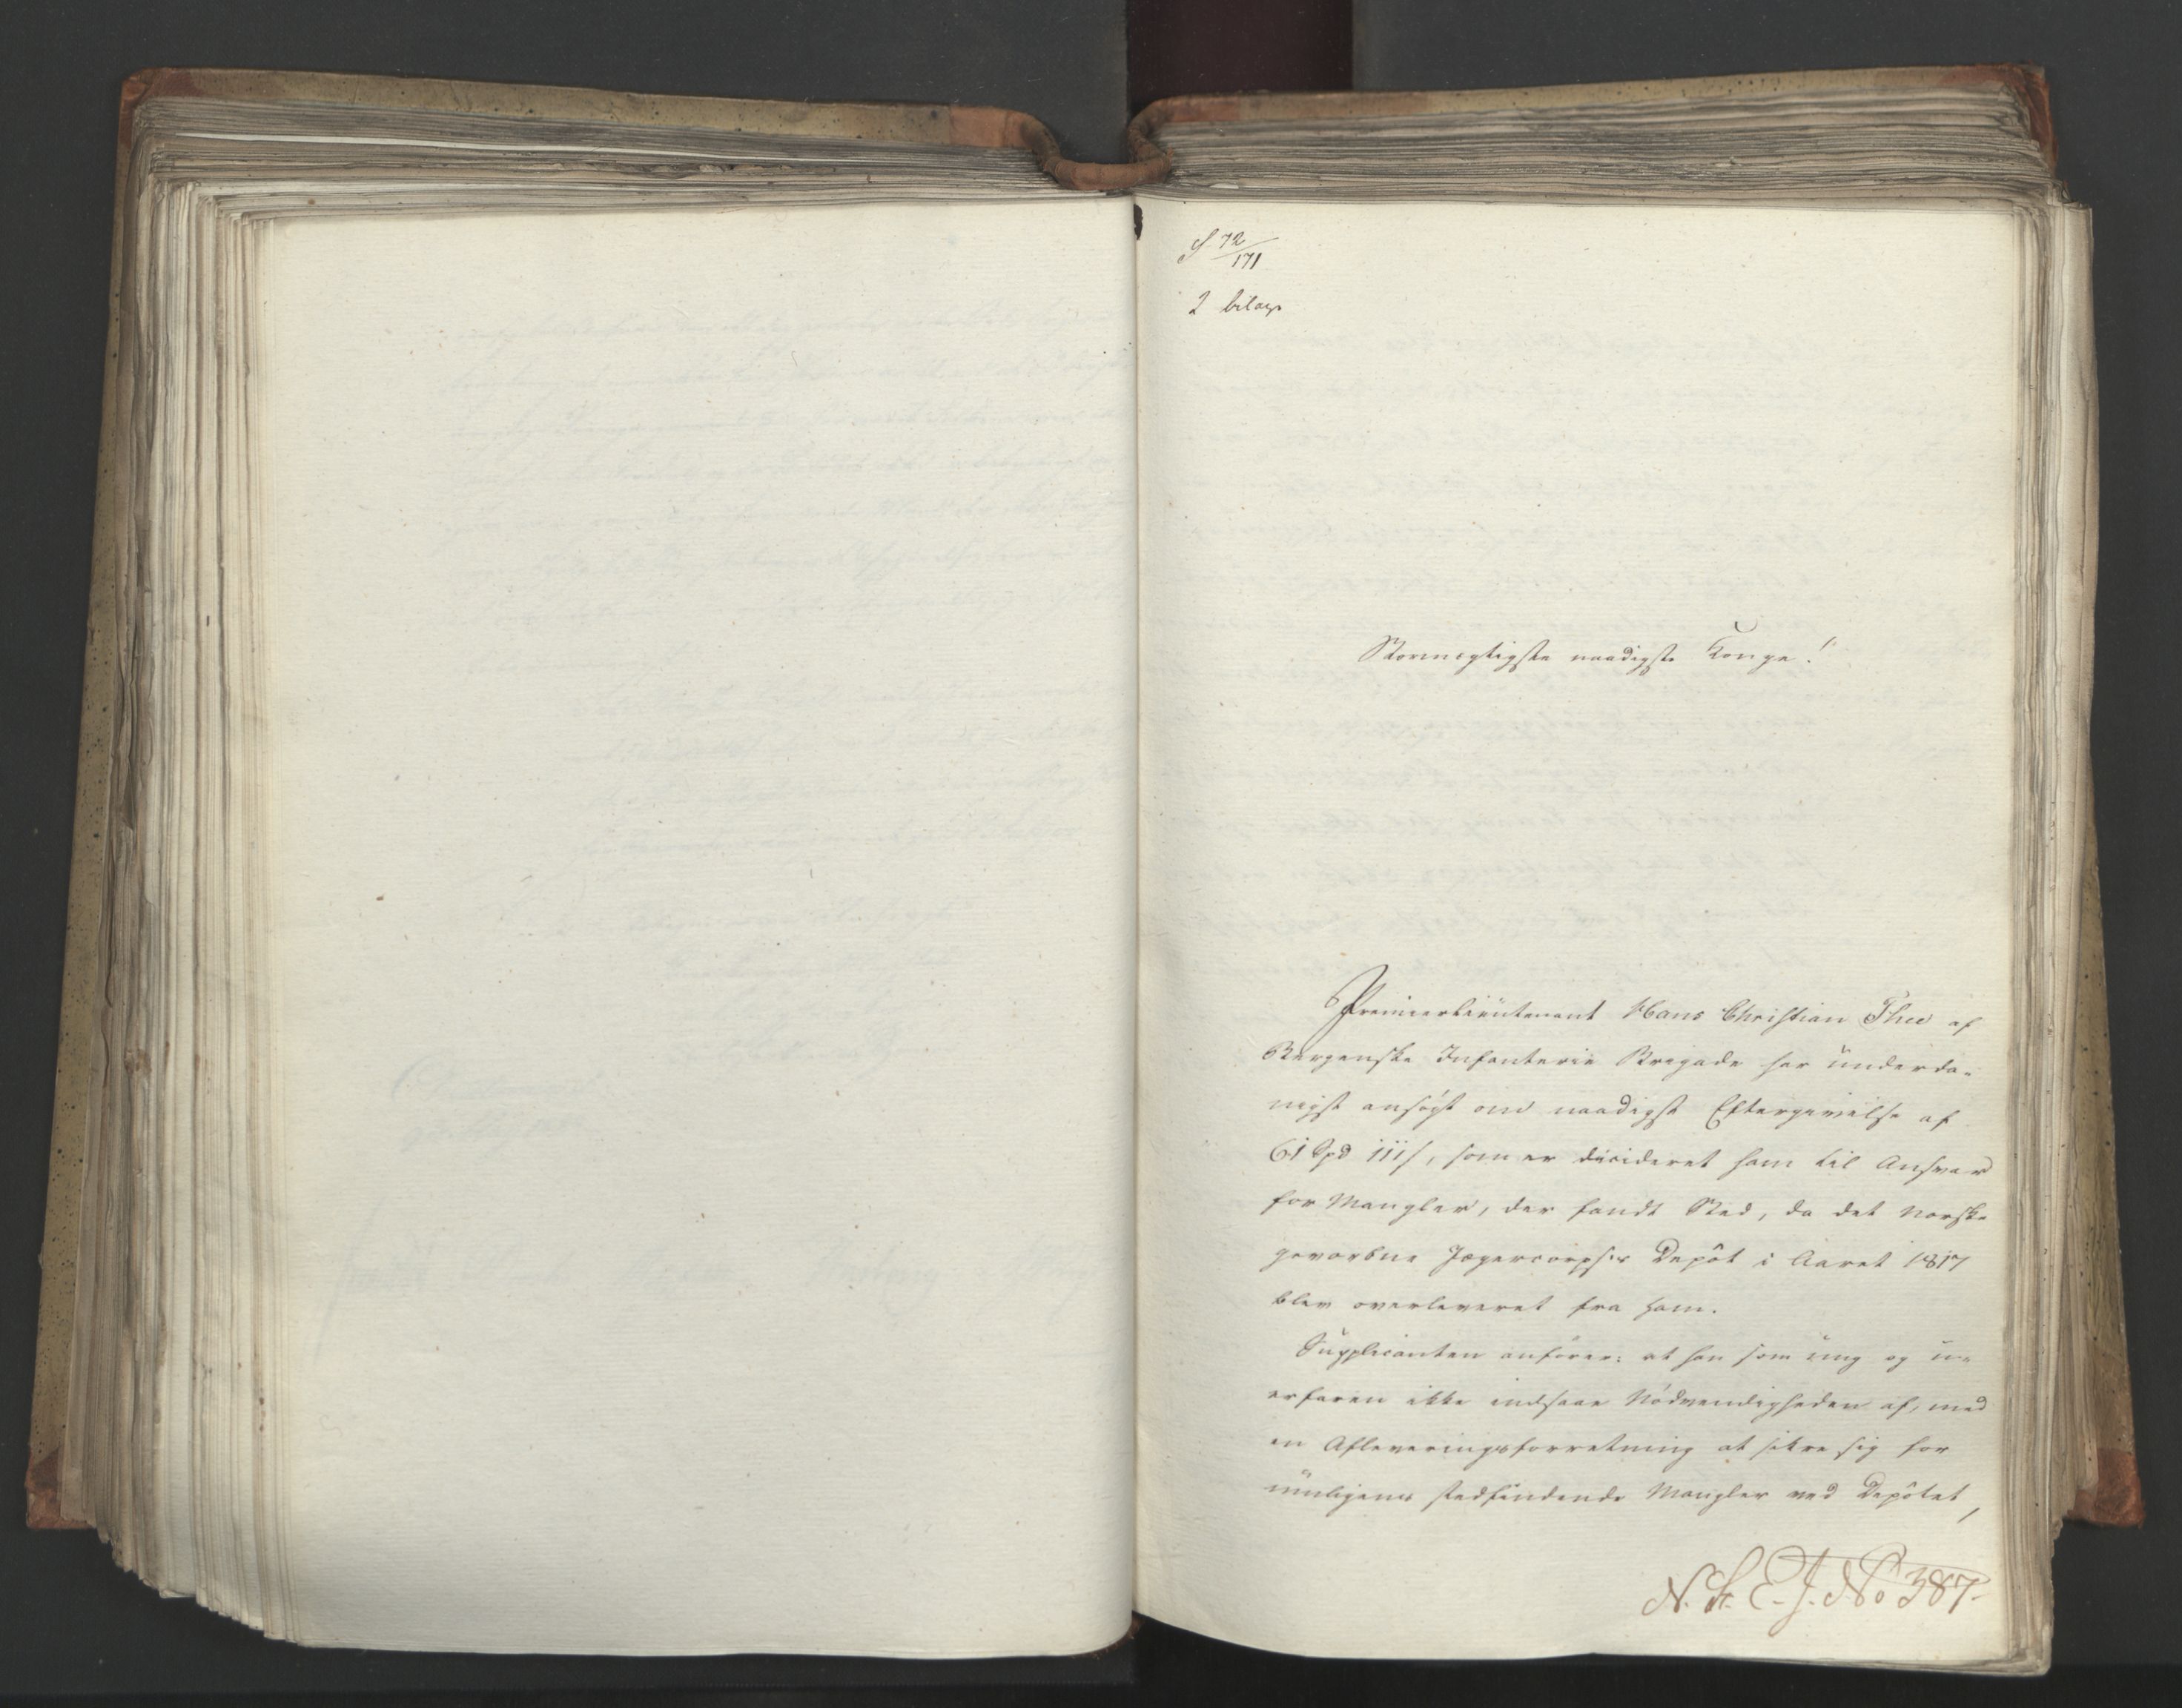 S 72/171
2 bilag
Stormægtigste naadigste Konge!
Premierlieutenant Hans Christian Thee af
Bergenske Infanterie Brigade har underda-
nigst ansøgt om naadigst Eftergivelse af
61 Spd 111 s, som er decideret ham til Ansvar
for Mangler, der fandt Sted, da det norske
gevorbne Jægercorpses Depôt i Aaret 1817
blev overleveret fra ham.
Supplicanten anfører: at han som ung og u-
erfaren ikke indsaae Nödvendigheden af, med
en Afleveringsforretning at sikre sig for
muligens stedfindende Mangler ved Depôtet,
N. St. E. J. No 387.